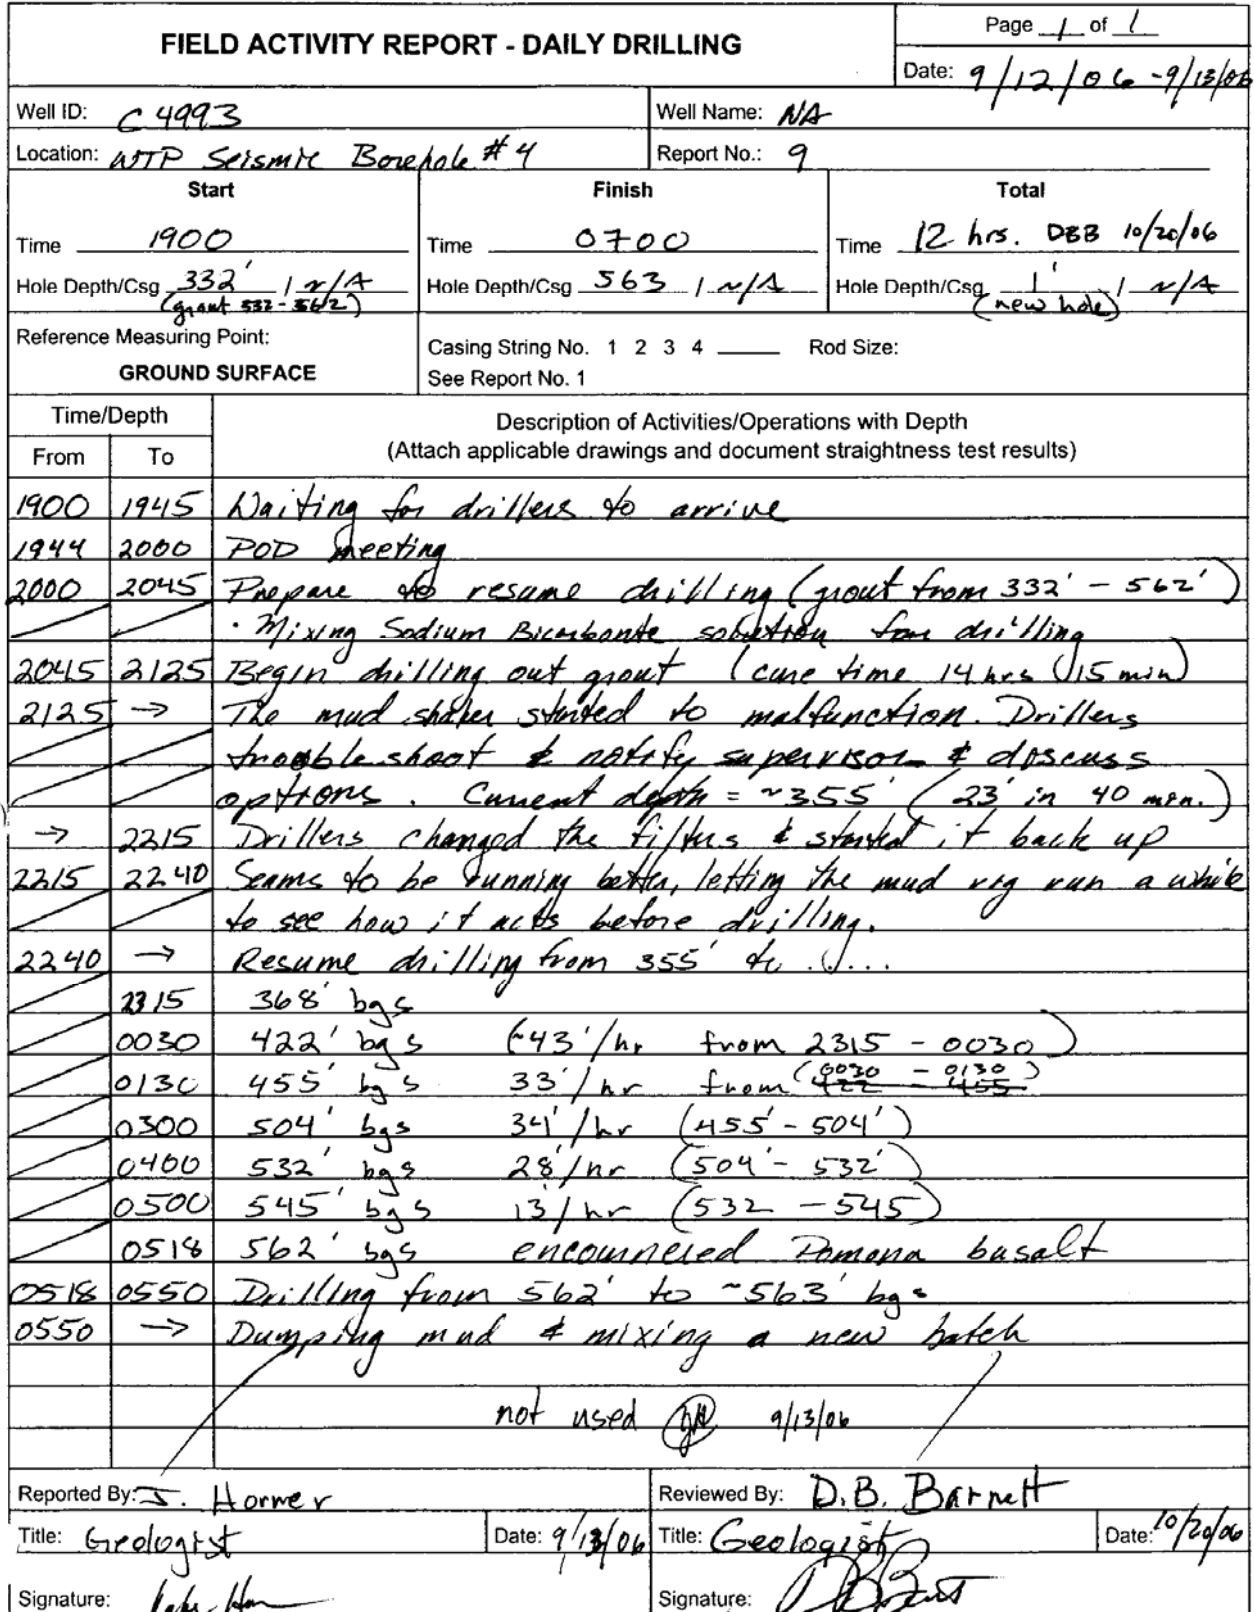 FIELD ACTIVITY REPORT - DAILY DRILLING
Page 1 of 1
Date: 9/12/06 - 9/13/06
Well ID: C4993
Well Name: NA
Location: WTP Seismic Borehole #4
Report No.: 9
Start
Finish
Total
Time 1900
Time 0700
Time 12 hrs. DBB 10/20/06
Hole Depth/Csg 332' / N/A
(grout 332-562)
Hole Depth/Csg 563 / N/A
Hole Depth/Csg 1' / N/A
(new hole)
Reference Measuring Point:
GROUND SURFACE
Casing String No. 1 2 3 4 ____ Rod Size:
See Report No. 1
Time/Depth
From To
Description of Activities/Operations with Depth
(Attach applicable drawings and document straightness test results)
1900 1945 Waiting for drillers to arrive
1944 2000 POD meeting
2000 2045 Prepare to resume drilling (grout from 332' - 562')
· Mixing Sodium Bicarbonte solution for drilling
2045 2125 Begin drilling out grout (cure time 14 hrs 15 min)
2125 → The mud shaker started to malfunction. Drillers
troubleshoot & notify supervisor & discuss
options. Current depth = ~355' (23' in 40 min.)
→ 2215 Drillers changed the filters & started it back up
2215 2240 Seams to be running better, letting the mud rig run a while
to see how it acts before drilling.
2240 → Resume drilling from 355' to ....
2315 368' bgs
0030 422' bgs (~43'/hr from 2315 - 0030)
0130 455' bgs 33'/hr from (0030 - 0130) 422 - 455
0300 504' bgs 34'/hr (455' - 504')
0400 532' bgs 28'/hr (504' - 532')
0500 545' bgs 13'/hr (532 - 545)
0518 562' bgs encounnered Pomona basalt
0518 0550 Drilling from 562' to ~563' bgs
0550 → Dumping mud & mixing a new batch
not used JH 9/13/06
Reported By: J. Horner
Reviewed By: D.B. Barnett
Title: Geologist
Date: 9/13/06
Title: Geologist
Date: 10/20/06
Signature:
Signature: